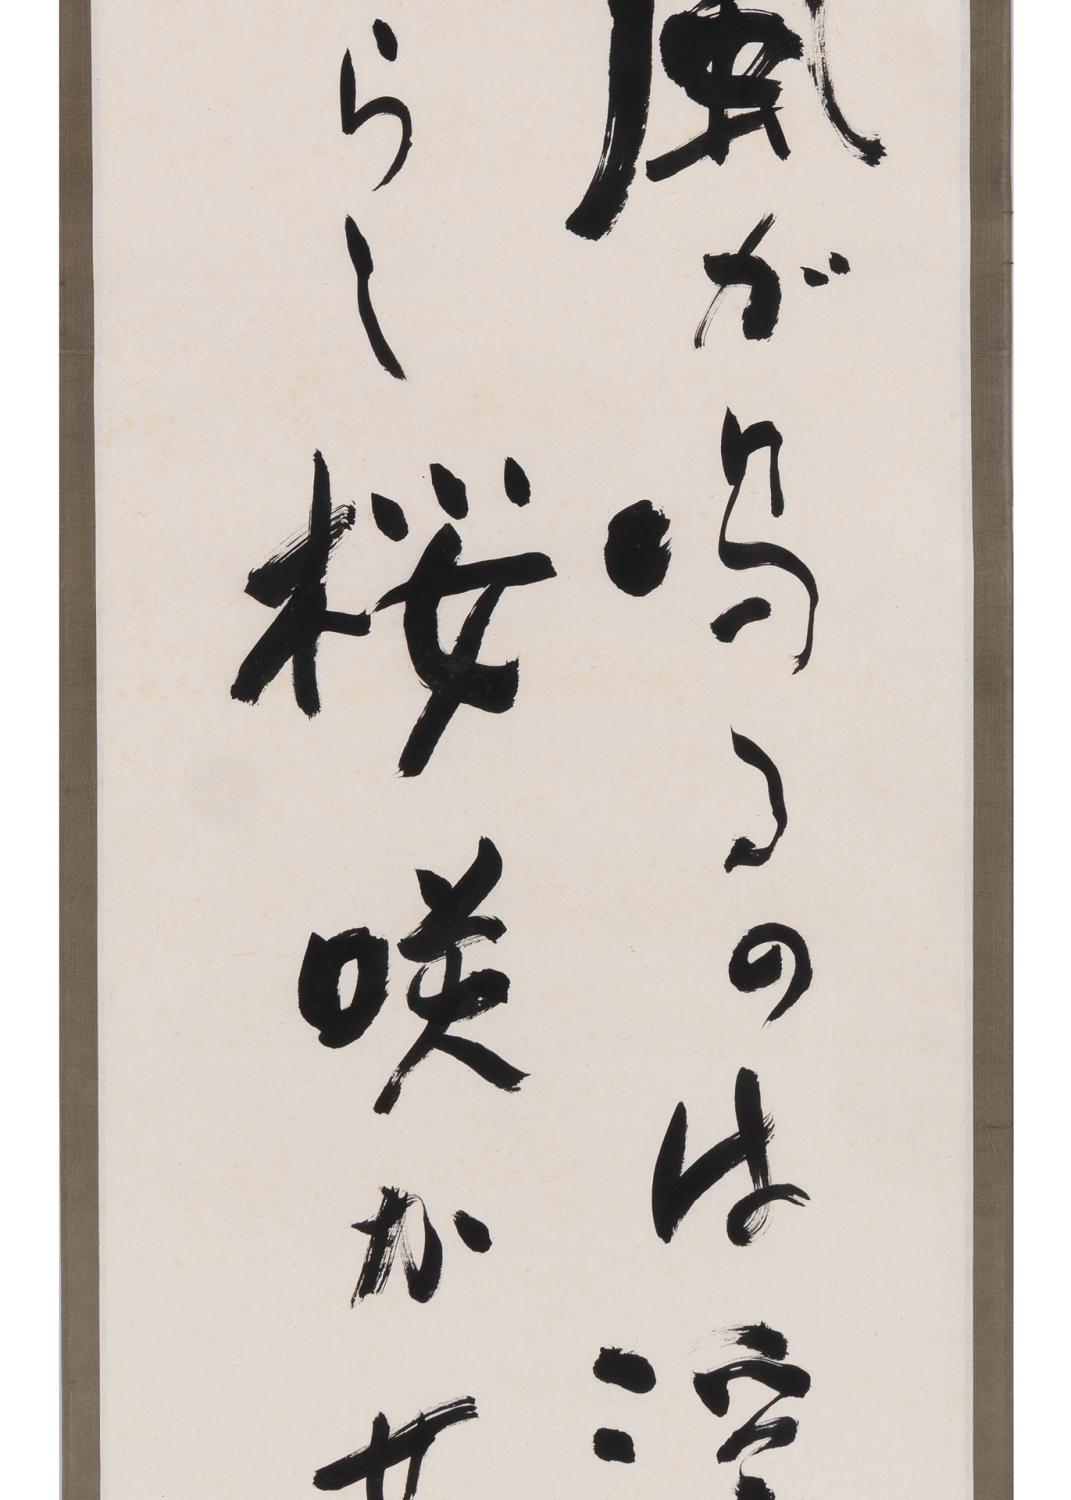 風が鳴るのは
らし桜咲かせ